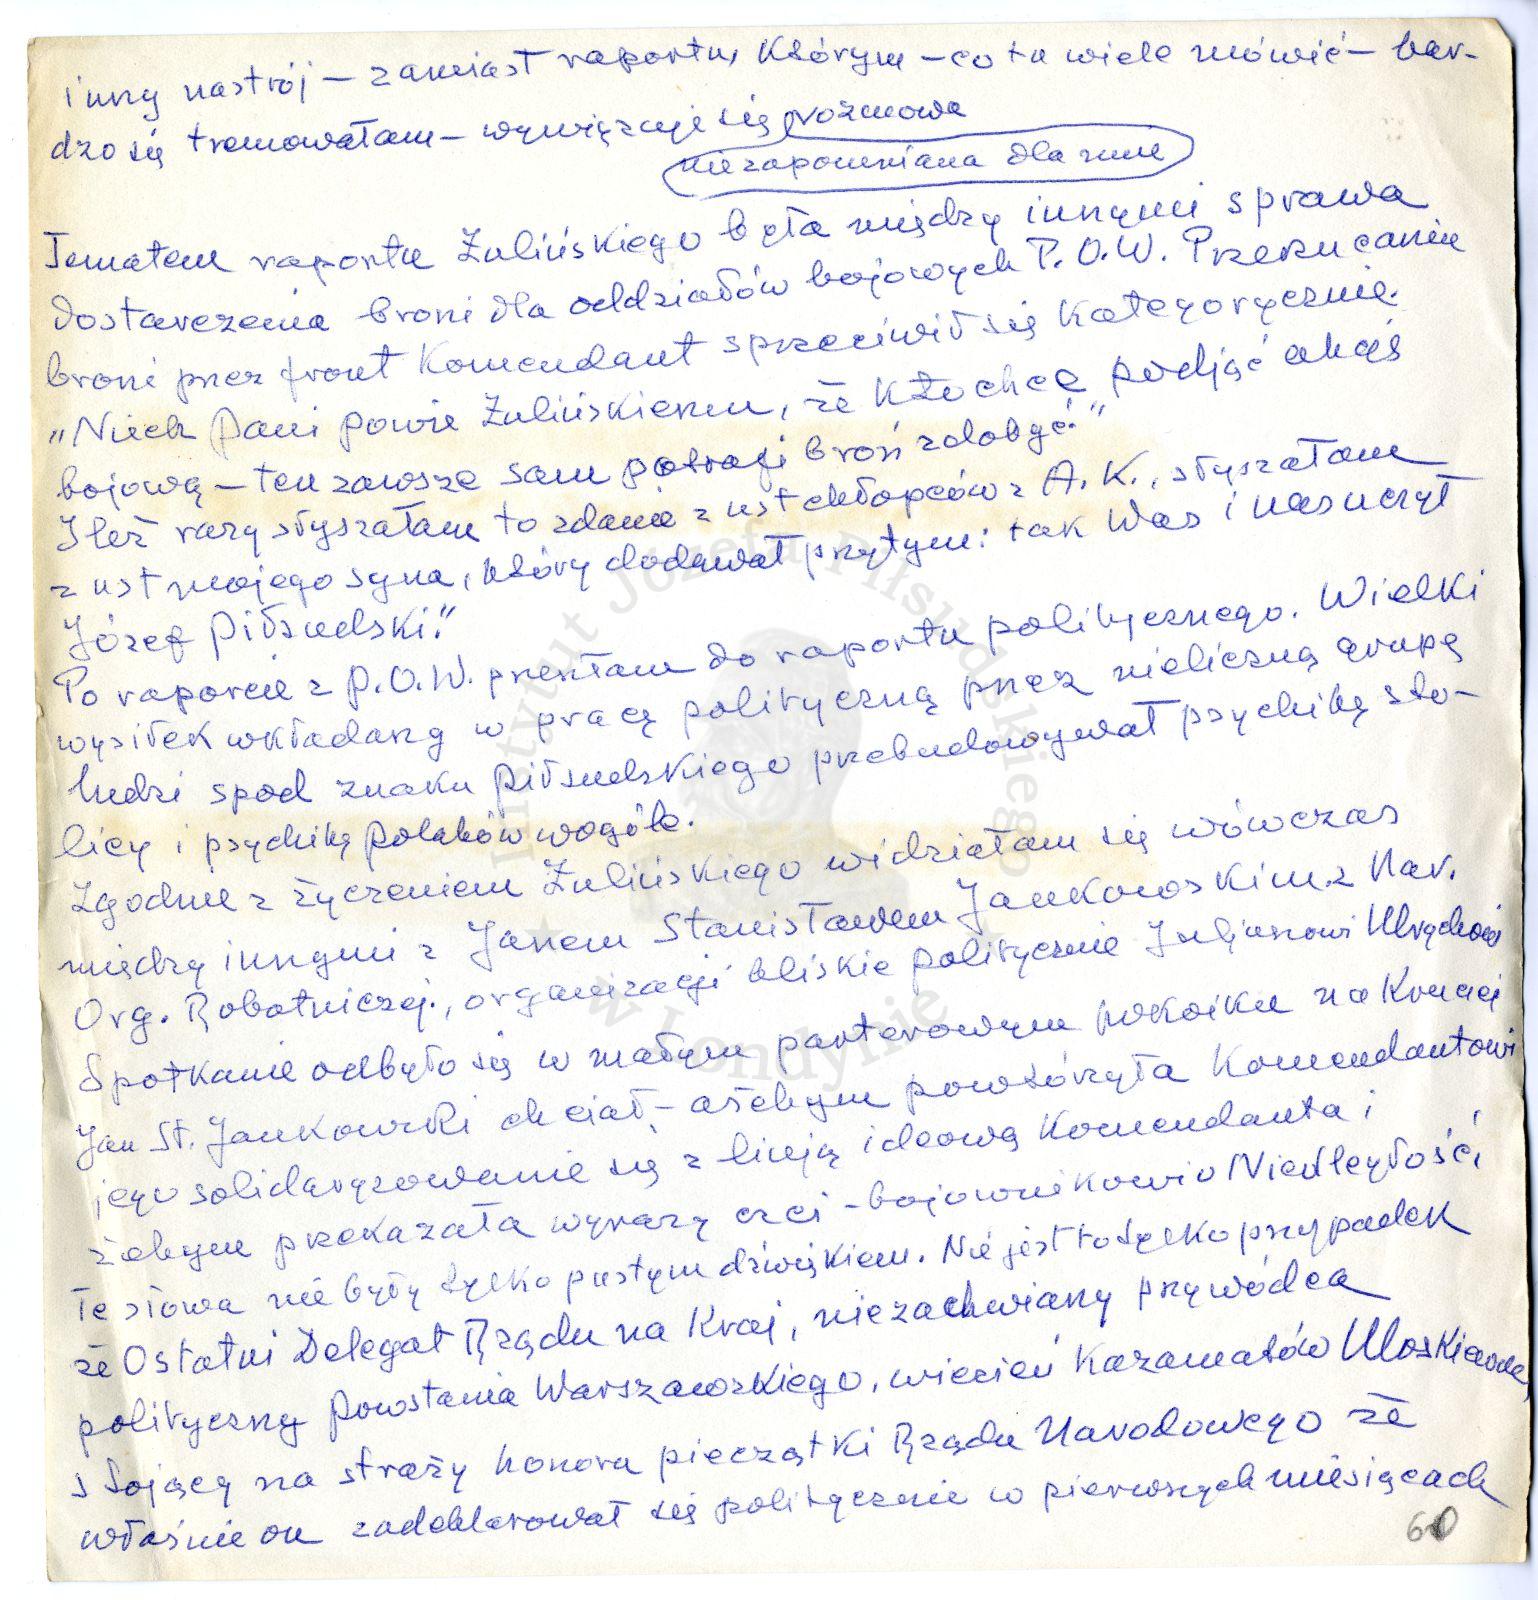 inny nastrój – zamiast raportu, którym – co tu wiele mówić – bar-
dzo się tremowałam – wywiązuje się rozmowa
niezapomniana dla mnie
Tematem raportu Żulińskiego była między innymi sprawa
dostarczenia broni dla oddziałów bojowych P.O.W. Przerzucaniu
broni przez front Komendant sprzeciwił się kategorycznie.
„Niech Pani powie Żulińskiemu, że kto chce podjąć akcję
bojową – ten zawsze sam potrafi broń zdobyć."
Ileż razy słyszałam to zdanie z ust chłopców z A.K., słyszałam
z ust mojego syna, który dodawał przytym: tak Was i nas uczył
Józef Piłsudski."
Po raporcie z P.O.W. przeszłam do raportu politycznego. Wielki
wysiłek wkładany w pracę polityczną przez nieliczną grupę
ludzi spod znaku Piłsudskiego przebudowywał psychikę sto-
licy i psychikę Polaków wogóle.
Zgodnie z życzeniem Żulińskiego widziałam się wówczas
między innymi z Janem Stanisławem Jankowskim z Nar.
Org. Robotniczej, organizacji bliskie politycznie Juljuszowi Ulrychowi
Spotkanie odbyło się w małym parterowym pokoiku na Kruczej
Jan St. Jankowski chciał – ażebym powtórzyła Komendantowi
jego solidaryzowanie się z linją ideową Komendanta i
żebym przekazała wyrazy czci – bojownikowi o Niedległość,
Te słowa nie były tylko pustym dźwiękiem. Nie jest to tylko przypadek
że Ostatni Delegat Rządu na Kraj, niezachwiany przywódca
polityczny Powstania Warszawskiego, więzień Kazamatów Moskiewskich,
stojący na straży honoru pieczątki Rządu Narodowego że
właśnie on zadeklarował się politycznie w pierwszych miesiącach
60
Instytut Józefa Piłsudskiego
w Londynie